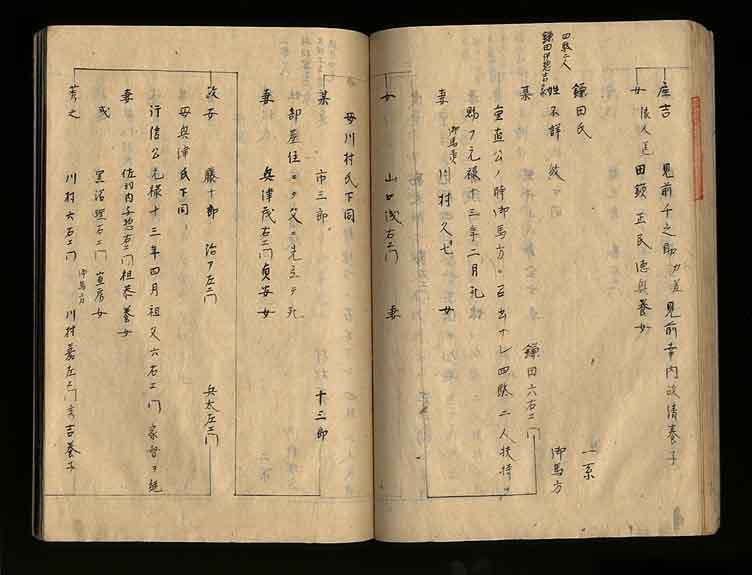 庄吉 見前千之助 見前幸内改清養子
女 田鎖正民徳興養女
鎌田氏 一系
四駄二人
鎌田
姓不詳 紋 御馬方
某 鎌田六右エ門
重直公ノ時御馬方ニ召出サレ四駄二人扶持
賜フ元禄十三年二月死
妻 御馬責 川村久七 女
女 山口茂右エ門 妻
母川村氏下同
某 市三郎 十三郎
部屋住ニテ父ニ先立テ死
妻 奥津茂右エ門貞安女
政安 藤十郎 治右エ門 兵太左エ門
母奥津氏下同
行信公元禄十三年四月祖父六右エ門家督ヲ継
妻 佐羽内 右エ門祖泰養女
或 黒沼理右エ門宣房女
芳之 川村六右エ門 御馬方 川村嘉左エ門秀吉養子